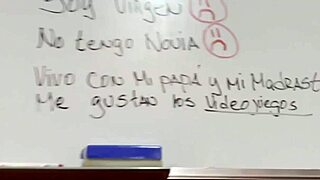 Soy Virgen
No tengo Novia
Vivo con Mi PAPÁ y Mi MADRAST
Me gustan los videojuegos